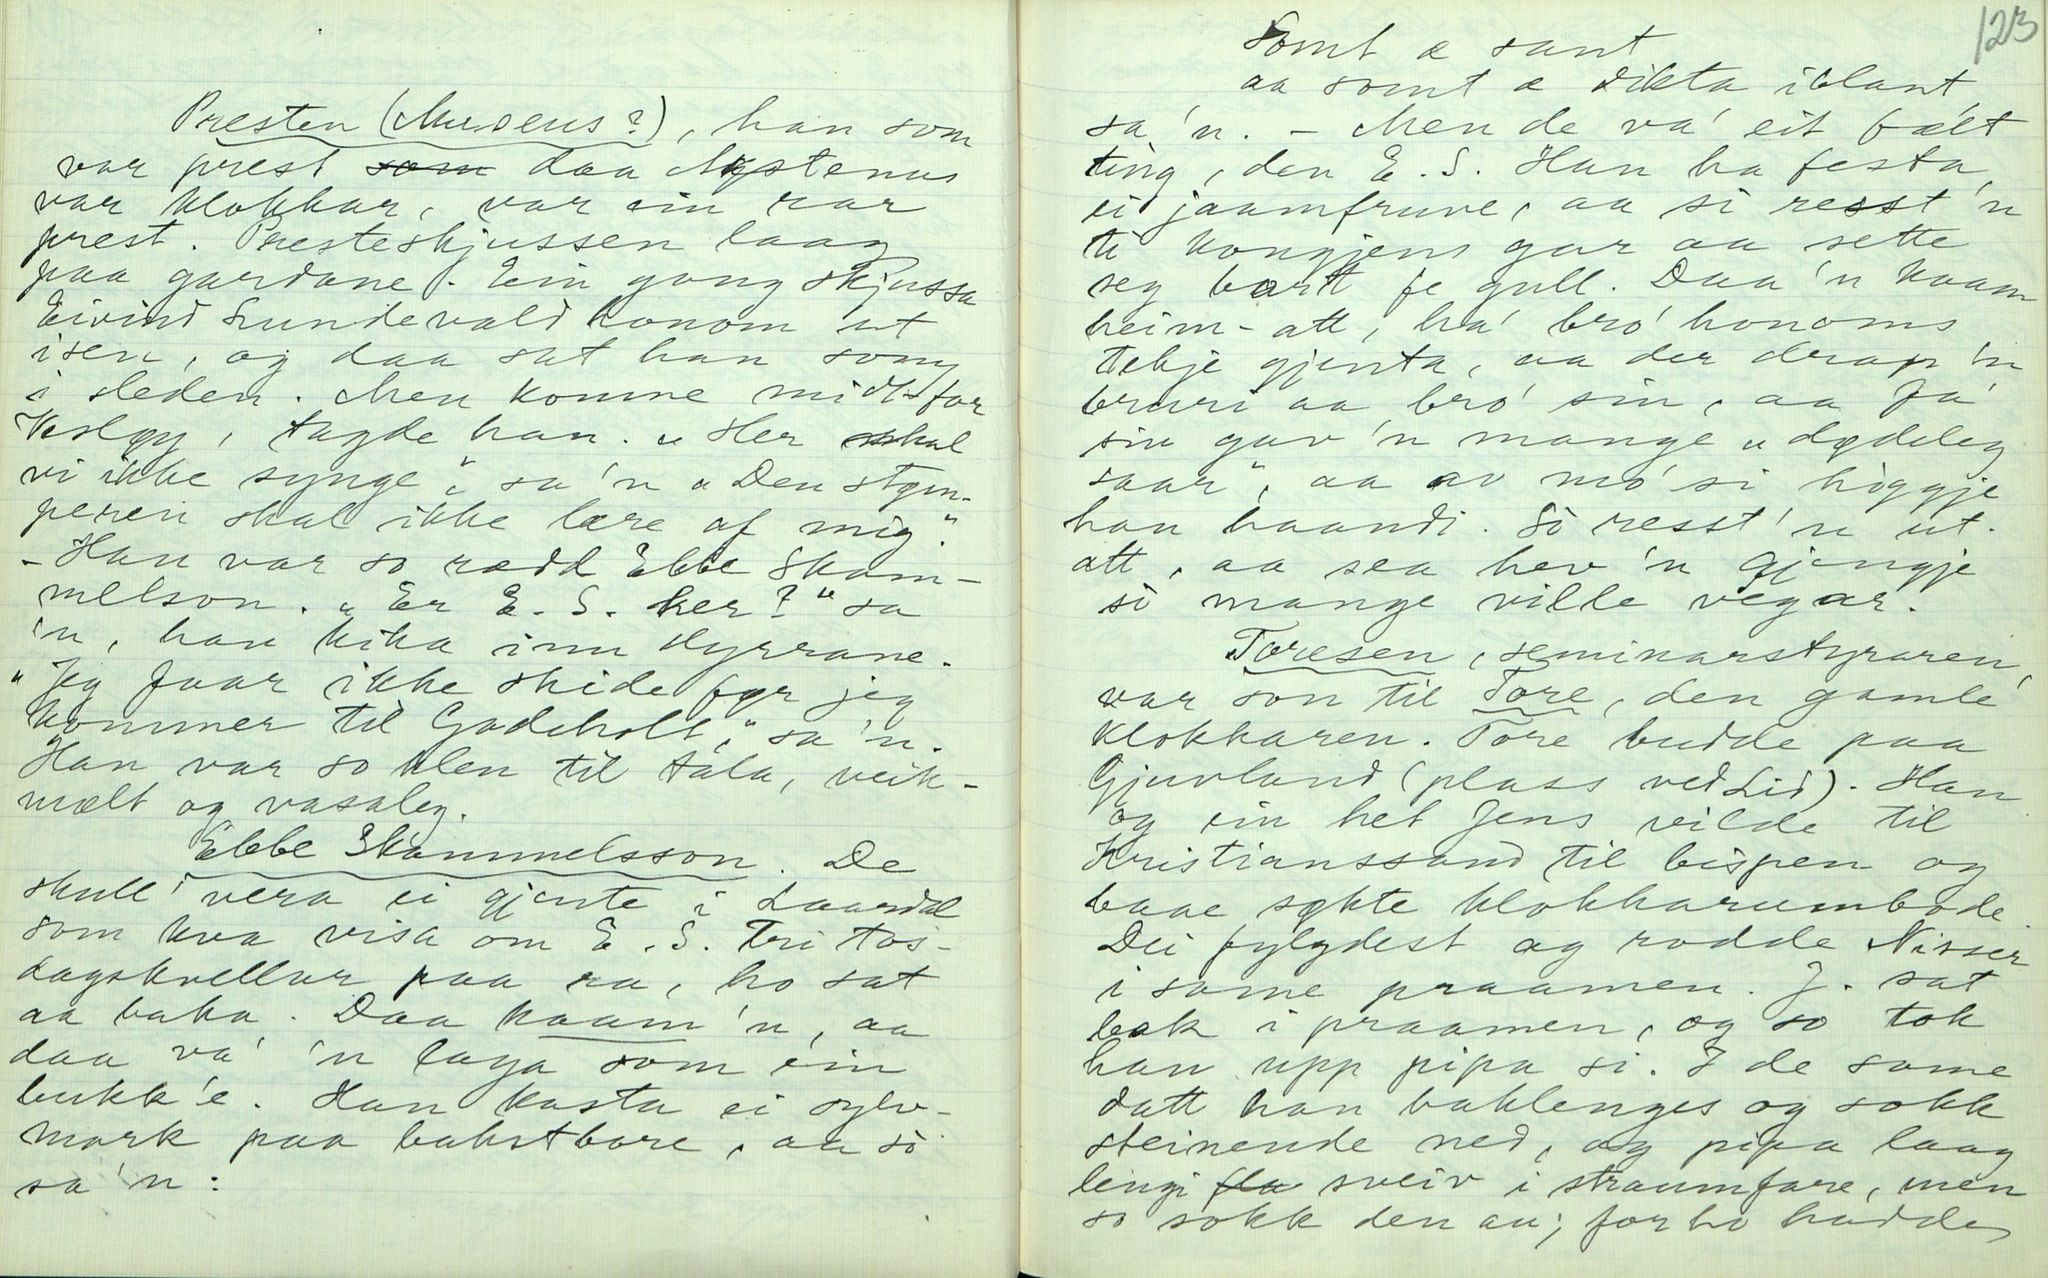 Presten (Museus?), han som
var prest som daa Mostenus
var klokkar, var ein rar
prest. Presteskjussen laag
paa gardane. Ein gong skjussa
Eivind Sundevald honom ut
isen, og daa sat han song
i sleden. Men komne midt for
Kosløy, tagde han. "Her skal
vi ikke synge", sa 'n "Den støm-
peren skal ikke lære af mig."
- Han var so rædd Ebbe Skam-
melson. "Er E. S. her?" sa
'n, han kika inn dyrrane.
"Jeg faar ikke skide før jeg
kommer til Gadeholt," sa 'n.
Han var so klen til tala, veik-
mælt og vasaleg.
Ebbe Skammelsson. De
skull' vera ei gjente i Laardal
som kva visa om E. S. tri tos-
dagskvellar paa ra, ho sat
aa baka. Daa kaam 'n, aa
daa va' 'n laga som ein
bukk'e. Han kasta ei sylv-
mark paa bakstbore, aa sò
sa 'n:
123
Somt æ sant
aa somt æ dikta iblant,
sa 'n. - Men de va' eit fælt
ting, den E. S. Han ha festa
ei jaamfruve, aa si resst 'n
ti kongjens gar aa sette
seg bort fe gull. Daa 'n kaam
heim-att, ha' bro' honoms
tekje gjenta, aa der drap 'n
bruri aa bro' sin, aa fa'
sin gav 'n mange "dødeleg
saar", aa av mo' si høggje
han haandi. Sò resst 'n ut-
att, aa sea hev 'n gjengje
sò mange ville vegar.
Toresen, seminarstyraren,
var son til Tore, den gamle
klokkaren. Tore budde paa
Gjuvland (plass ved Lid). Han
og ein het Jens vilde til
Kristianssand til bispen og
baae søkte klokkarumbode
Dei fylgdest og rodde Nisser
i same praamen. J. sat
bak i praamen, og so tok
han upp pipa si. I de same
datt han baklenges og sokk
steinende ned, og pipa laag
lengi fla sveiv i straumfare, men
so sokk den au; for ho hadde